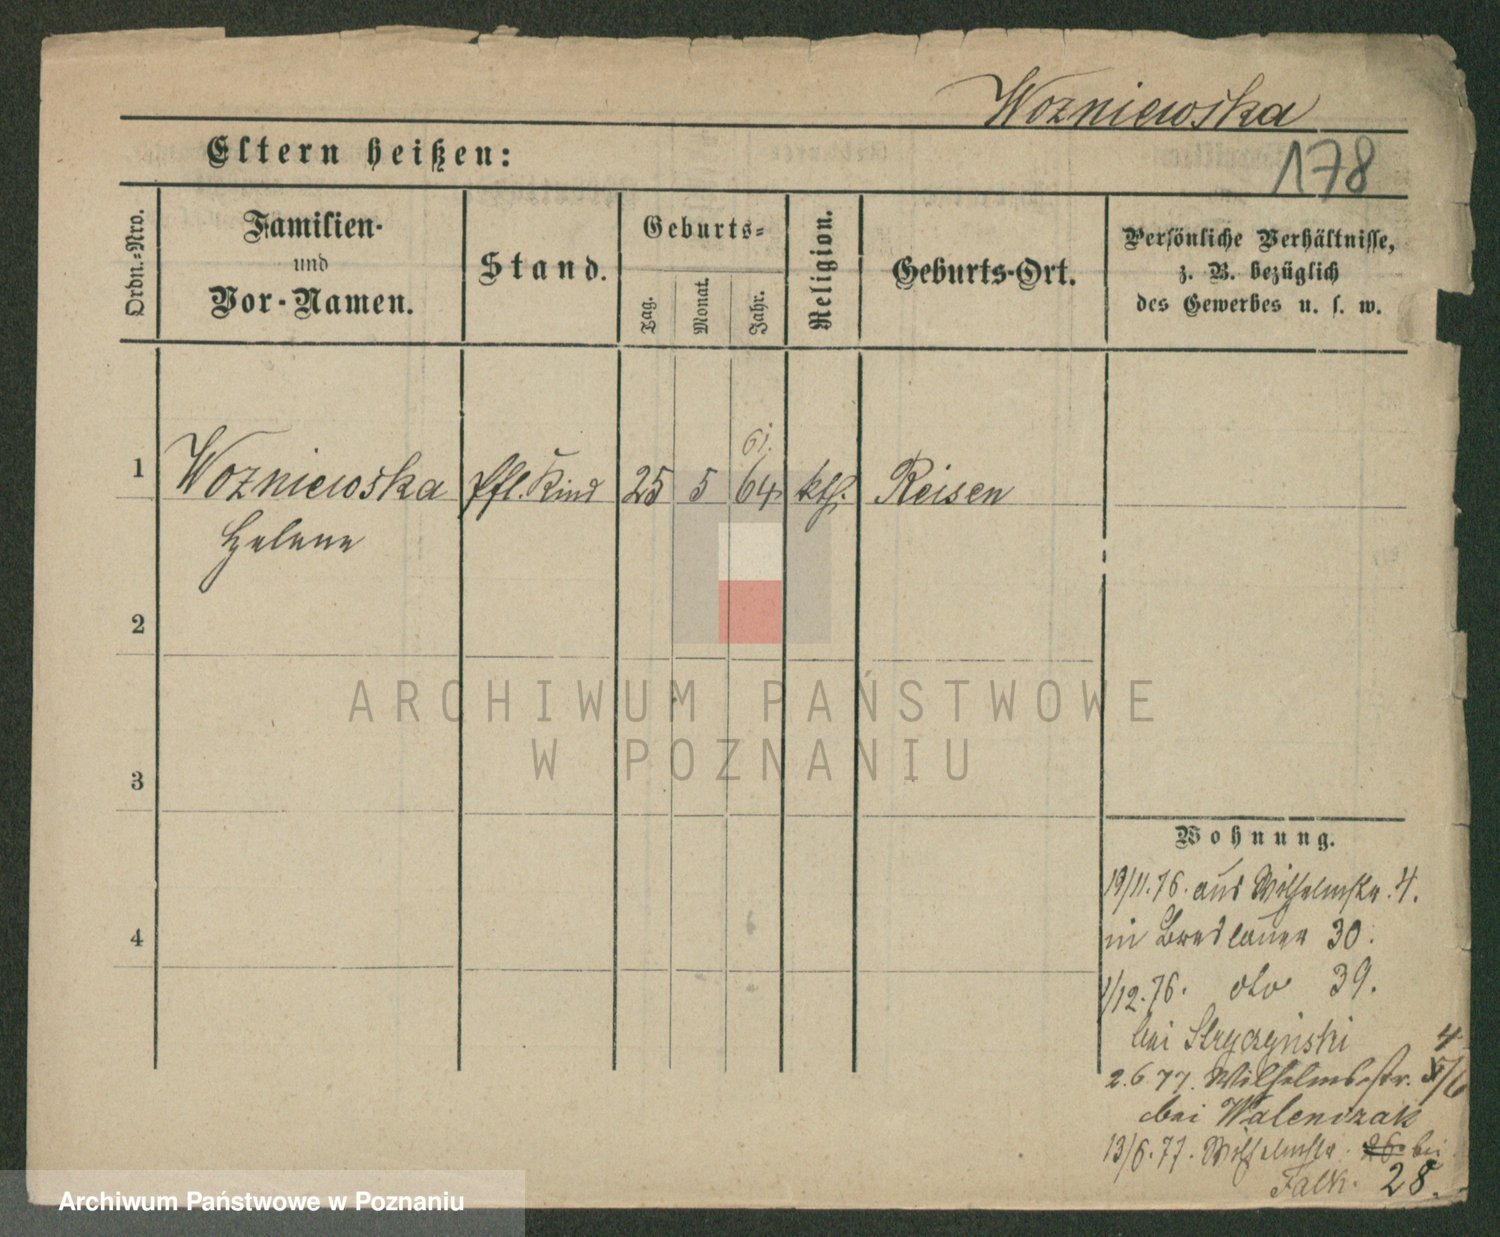 Wozniewska
178
Eltern heißen:
Ordn.-Nro.
Familien-
und
Vor-Namen.
Stand.
Geburts-
Tag.
Monat.
Jahr.
Religion.
Geburts-Ort.
Persönliche Verhältnisse,
z. B. bezüglich
des Gewerbes u. s. w.
61.
1 Wozniewska Pfl. Kind 25 5 64 kth. Reisen
Helene
2
3
4
Wohnung.
19/11.76. aus Wilhelmstr. 4.
in Breslauer 30.
1/12.76. dto 39.
bei Stryczynski
4
2.6.77. Wilhelmsstr. /6
bei Walenczak
13/6.77. Wilhelmstr. 26 bei
Falk. 28.
ARCHIWUM PAŃSTWOWE
W POZNANIU
Archiwum Państwowe w Poznaniu